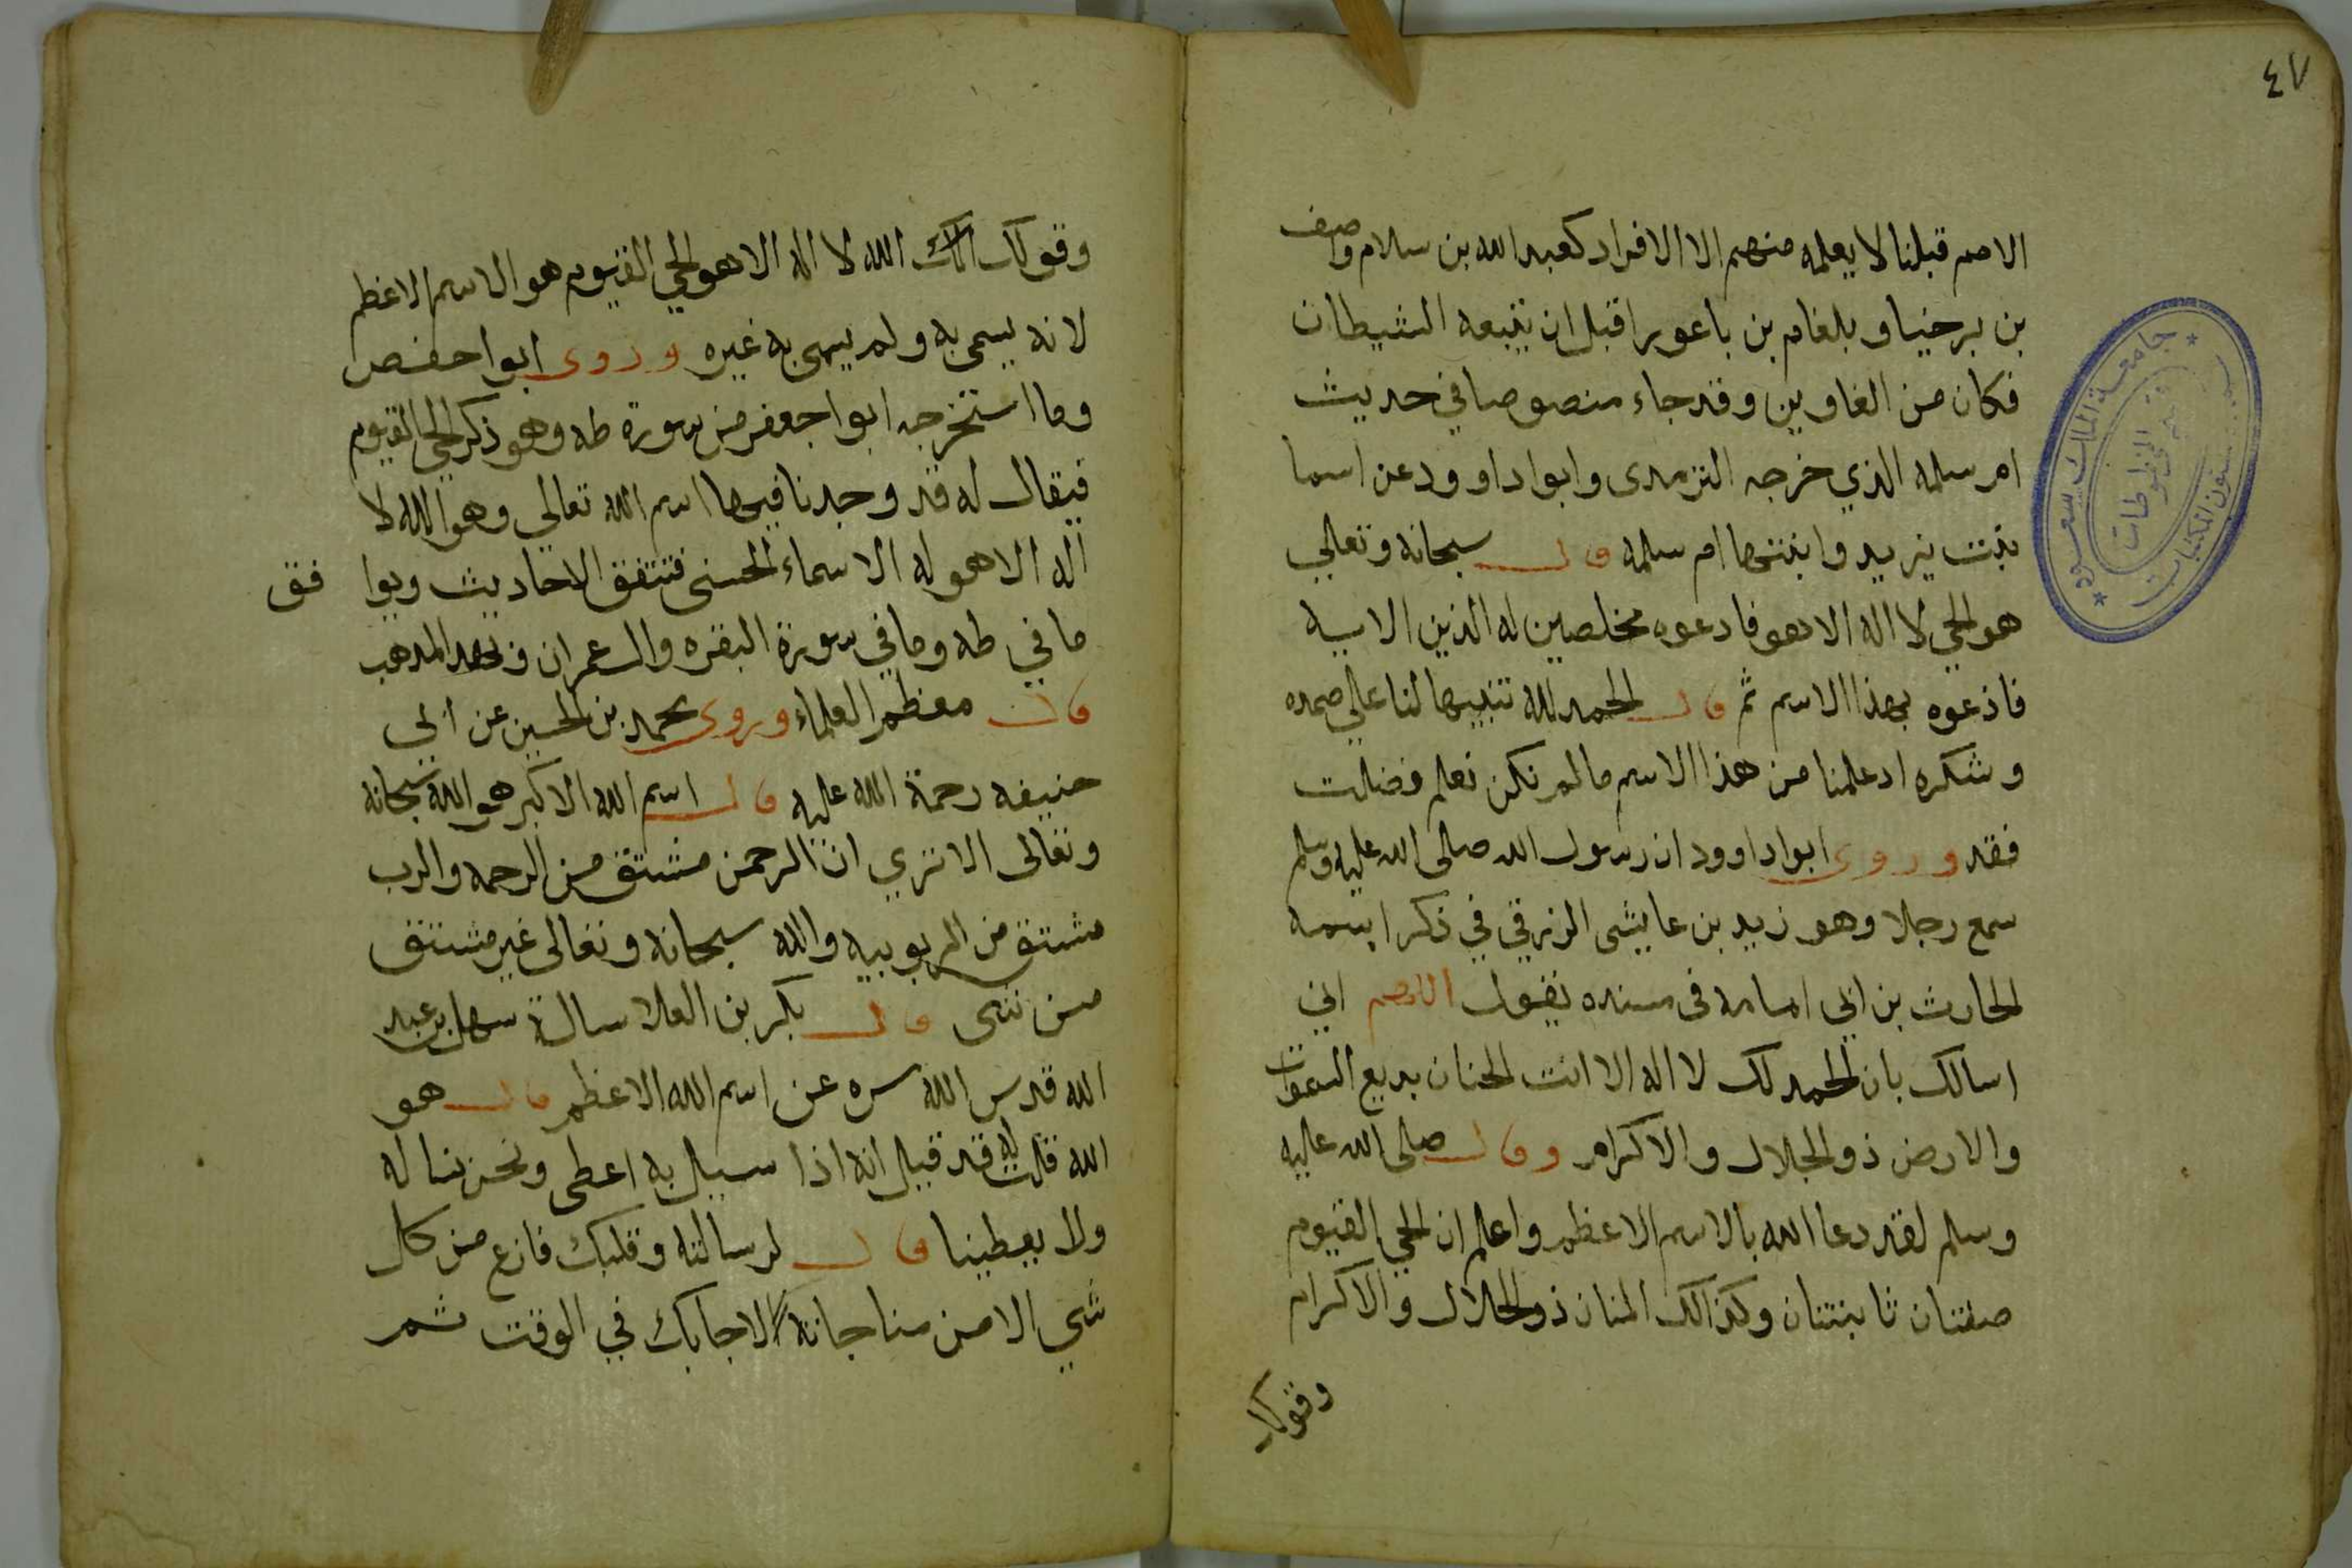 ٤٧
الامم قبلنا لا يعلمه منهم الا الافراد كعبد الله بن سلام واصف
بن برخيا و بلغام بن باعويرا قبل ان يتبعه الشيطان
فكان من الغاوين وقد جاء منصوصا في حديث
ام سلمه الذي خرجه الترمدى وابوا داوود عن اسما
بنت يزيد وابنتها ام سلمه قال سبحانه وتعالى
هو الحي لا اله الا هو فادعوه مخلصين له الذين الايه
فاذعوه بهذا الاسم ثم قال الحمد لله تنبيها لنا على حمده
وشكره ادعلمنا من هذا الاسم مالم نكن نعلم فضلت
فقد وروى ابوا داوود ان رسول الله صلى الله عليه وسلم
سمع رجلا وهو زيد بن عايشى الزرقي في ذكر اسمه
الحارث بن ابي امامه فى مسنده يقول اللهم اني
اسالك بان الحمد لك لا اله الا انت الحنان بديع السموات
والارض ذو الجلال والاكرام وقال صلى الله عليه
وسلم لقد دعا الله بالاسم الاعظم واعلم ان الحي القيوم
صفتان ثابنتان وكذالك المنان ذو الجلال والاكرام
وقولك
جامعة الملك سعود
شئون المكتبات
المخطوطات
وقولك الله لا اله الا هو الحي القيوم هو الاسم الاعظم
لانه يسمى به ولم يسمى به غيره وروى ابوا حفص
وما استخرجه ابوا جعفر من سورة طه وهو ذكر الحي القيوم
فيقال له قد وجدنا فيها اسم الله تعالى وهو الله لا
اله الا هو له الاسماء الحسنى فتتفق الاحاديث ويوا فق
ما في طه وما في سورة البقره وال عمران و لهد المدهب
قال معظم العلماء وروى محمد بن الحسين عن ابي
حنيفه رحمة الله عليه قال اسم الله الاكبر هو الله سبحانه
وتعالى الا تري ان الرحمن مشتق من الرحمه والرب
مشتق من الربوبيه والله سبحانه وتعالى غير مشتق
من شى قال بكر بن العلا سالة سهل بن عبد
الله قدس الله سره عن اسم الله الاعظم قال هو
الله قلت له قد قيل انه اذا سيل به اعطى ونحن نساله
ولا يعطينا قال لو سالته وقلبك فارغ من كل
شي الا من مناجاته الاجابك في الوقت ثم